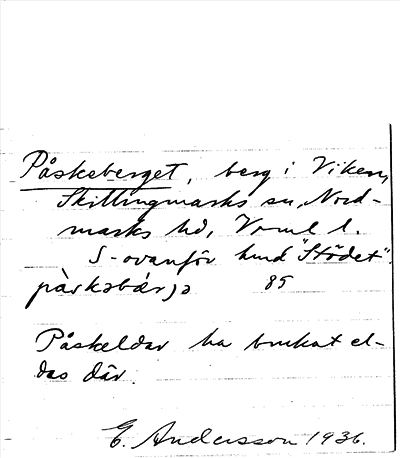 Påskeberget, berg i Viken,
Skillingmarks sn, Nord-
marks hd, Vrml l.
S-ovanför hmd "Stödet".
pàskəbǽrjə 85
Påskeldar ha brukat el-
das där.
E. Andersson 1936.